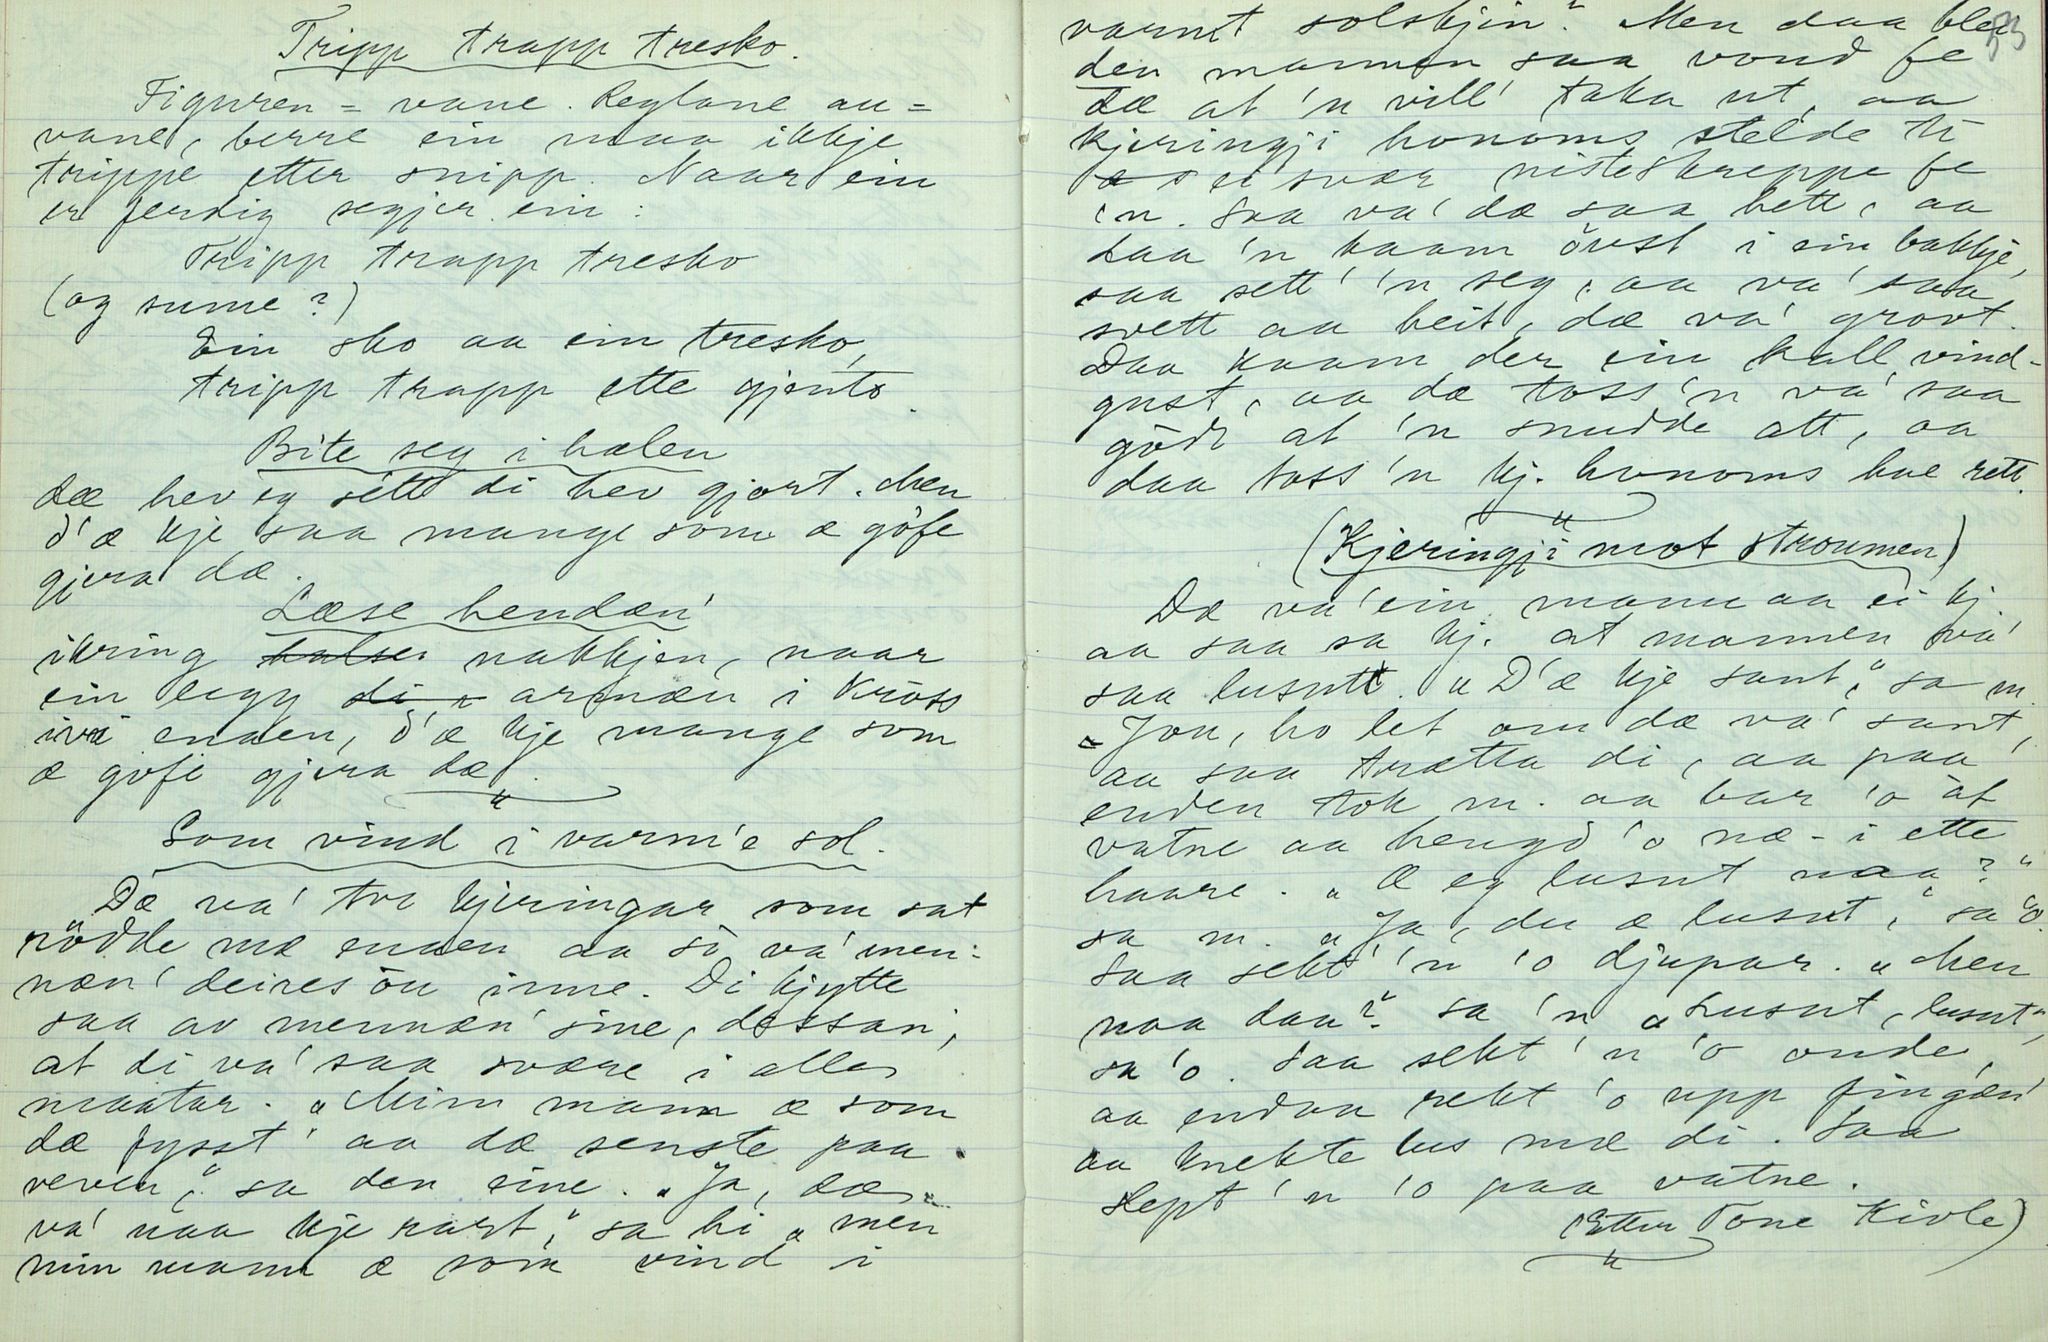 Tripp trapp tresko.
Figuren = vane. Reglane au =
vane, berre ein maa ikkje
trippe etter snipp. Naar ein
er ferdig segjer ein:
Tripp trapp tresko
(og sume?)
Ein sko aa ein tresko,
tripp trapp ette gjento.
Bite seg i hælen
Dæ hev eg sett di hev gjort. Men
d'æ kje saa mange som æ göfe
gjera dæ.
Læse hendan'
ikring halsen nakkjen, naar
ein legg di armæn i kross
ivi enaen, d'æ kje mange som
æ gofe gjera dæ.
Som vind i varm'e sol.
Dæ va' tvo kjeringar som sat
rödde mæ enaen aa so va' men-
næn' deires òu inne. Di kjytte
saa av mennæn' sine, dessan,
at di va' saa svære i alle
maatar. "Minn mann æ som
dæ fysst' aa dæ senste paa
veven," sa den eine. "Ja, dæ
va' naa kje rart," sa hi "men
min mann æ som vind i
53
varmt solskjin". Men daa blei
den mannen saa vond fe
dæ at 'n vill' taka ut, aa
kjeringji honoms stelde ti
ei svær nisteskreppe fe
'n. Saa va' dæ saa hett, aa
daa 'n kaam övst i ein bakkje,
saa sett' 'n seg, aa va' saa
svett aa heit, dæ va' grovt.
Daa kaam der ein kall vind-
gust, aa dæ toss 'n va' saa
gödt at 'n snudde att, aa
daa toss 'n kj. honoms hae rett.
(Kjeringji mot stroumen)
Dæ va' ein mann aa ei kj.
aa saa sa kj. at mannen va'
saa lusutt. "D'æ kje sant," sa m.
"Jou, ho let om dæ va' sant,
aa saa trætta di, aa paa
enden tok m. aa bar 'o åt
vatne aa hengd' 'o næ- i ette
haare. "Æ eg lusut naa?"
sa m. "Ja, du æ lusut," sa 'o.
Saa sekt' 'n 'o djupar. "Men
naa daa?" sa 'n "Lusut, lusut",
sa 'o. Saa sekt 'n 'o onde,
aa endaa rekt 'o upp fingæn'
aa knekte lus mæ di. Saa
slept 'n 'o paa vatne.
(Etter Tone Kivle)